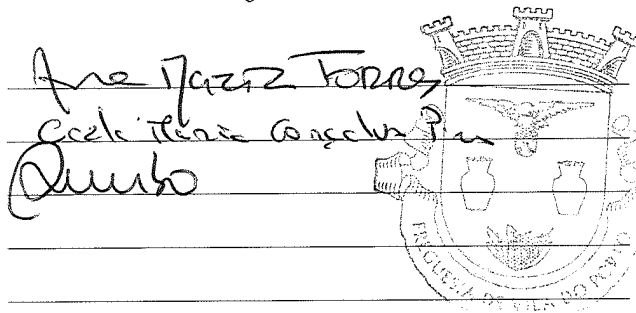 Ana Maria Torres
Carla Maria Gonçalves
FREGUESIA DE VILA DO PORTO